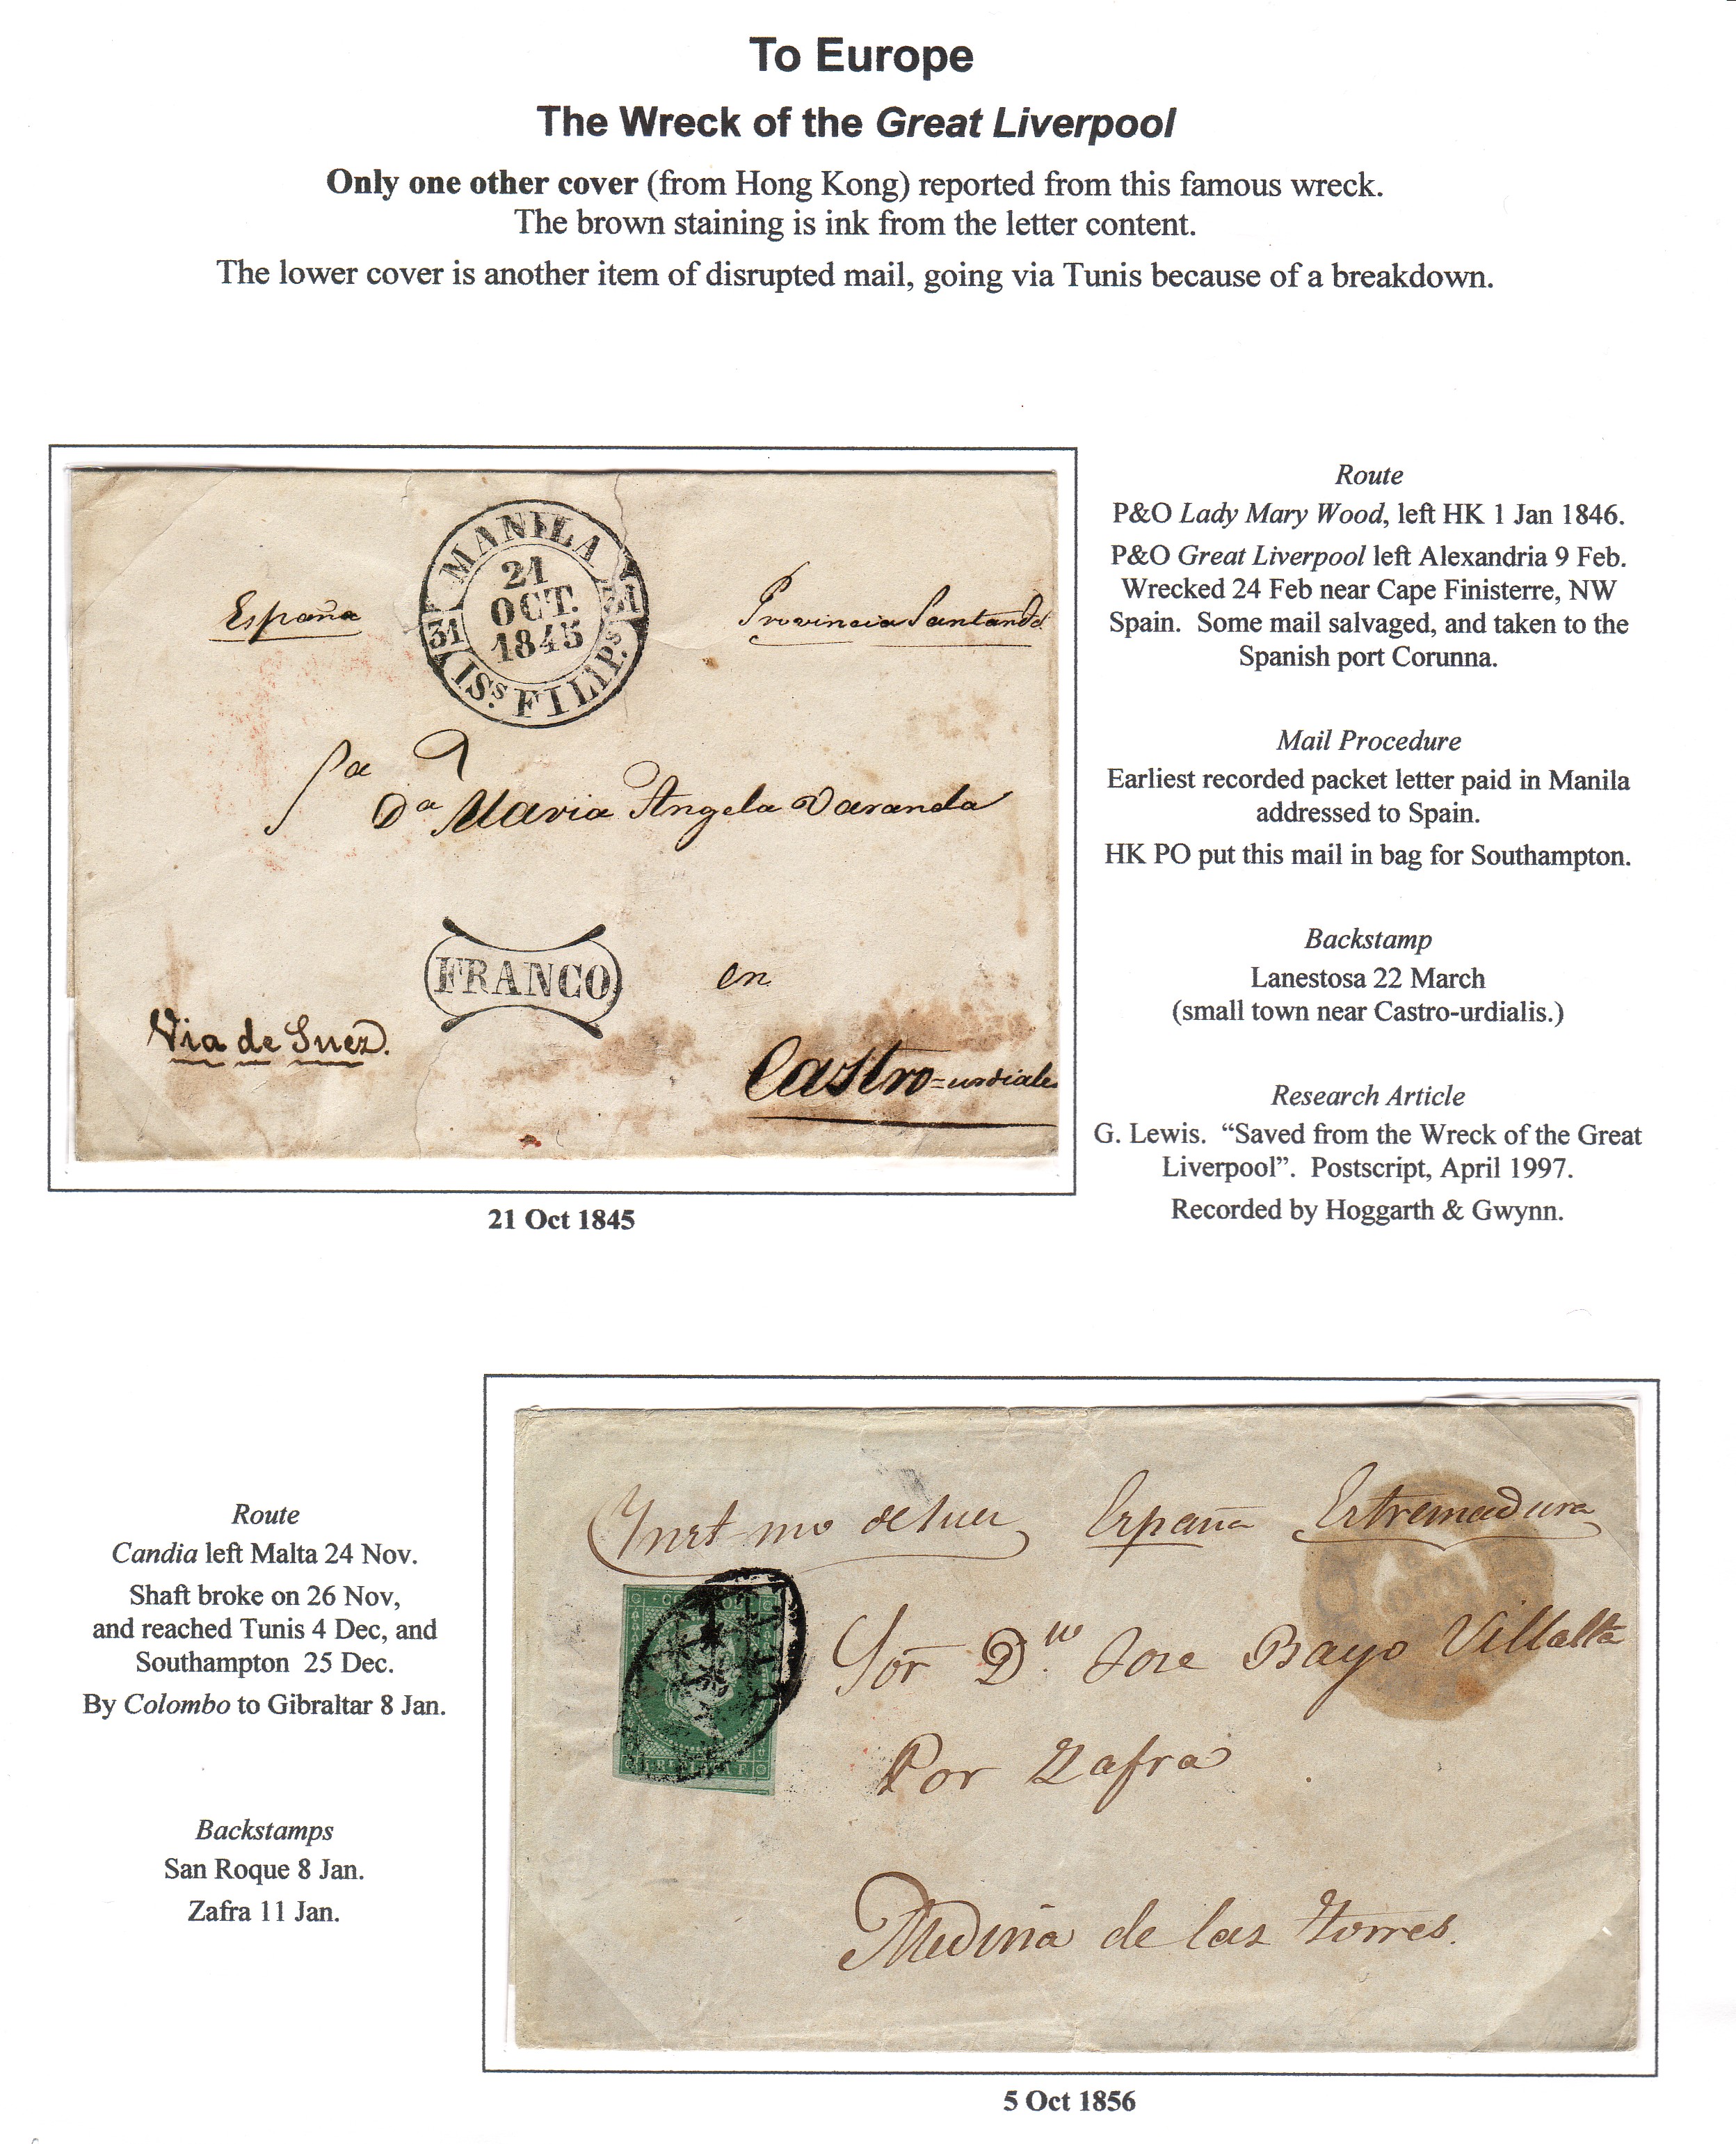 To Europe
The Wreck of the Great Liverpool
Only one other cover (from Hong Kong) reported from this famous wreck.
The brown staining is ink from the letter content.
The lower cover is another item of disrupted mail, going via Tunis because of a breakdown.
MANILA
21
OCT.
1845
31 31
ISs. FILIPs.
España
Provincia Santander
Sa Da Maria Angela Varanda
FRANCO
en
Via de Suez.
Castro=urdiales
21 Oct 1845
Route
P&O Lady Mary Wood, left HK 1 Jan 1846.
P&O Great Liverpool left Alexandria 9 Feb.
Wrecked 24 Feb near Cape Finisterre, NW
Spain. Some mail salvaged, and taken to the
Spanish port Corunna.
Mail Procedure
Earliest recorded packet letter paid in Manila
addressed to Spain.
HK PO put this mail in bag for Southampton.
Backstamp
Lanestosa 22 March
(small town near Castro-urdialis.)
Research Article
G. Lewis. “Saved from the Wreck of the Great
Liverpool”. Postscript, April 1997.
Recorded by Hoggarth & Gwynn.
Route
Candia left Malta 24 Nov.
Shaft broke on 26 Nov,
and reached Tunis 4 Dec, and
Southampton 25 Dec.
By Colombo to Gibraltar 8 Jan.
Backstamps
San Roque 8 Jan.
Zafra 11 Jan.
Yust mo de Suez España Estremadura
Sor Dn Jose Bayo Villalta
Por Zafra
Medina de las Torres.
5 Oct 1856